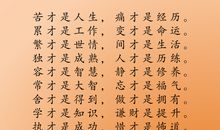 苦才是人生，痛才是经历。
累才是工作，变才是命运。
繁才是世情，间才是生活。
独才是成熟，人才是历练。
容才是智慧，静才是修养。
常才是大智，忘才是福气。
舍才是得到，做才是拥有。
学才是知识，谦才是提升。